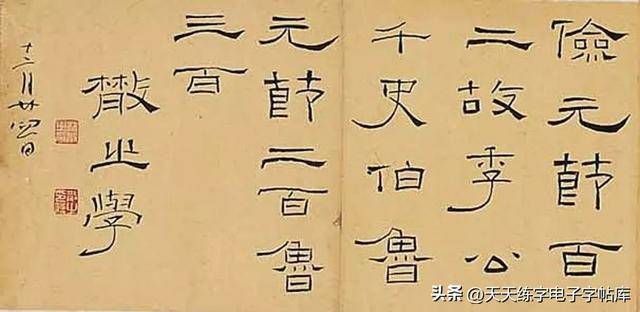 儉元節百
二故季公
千史伯魯
元節二百魯
三百
散之學
十二月廿四日
头条 @天天练字电子字帖库